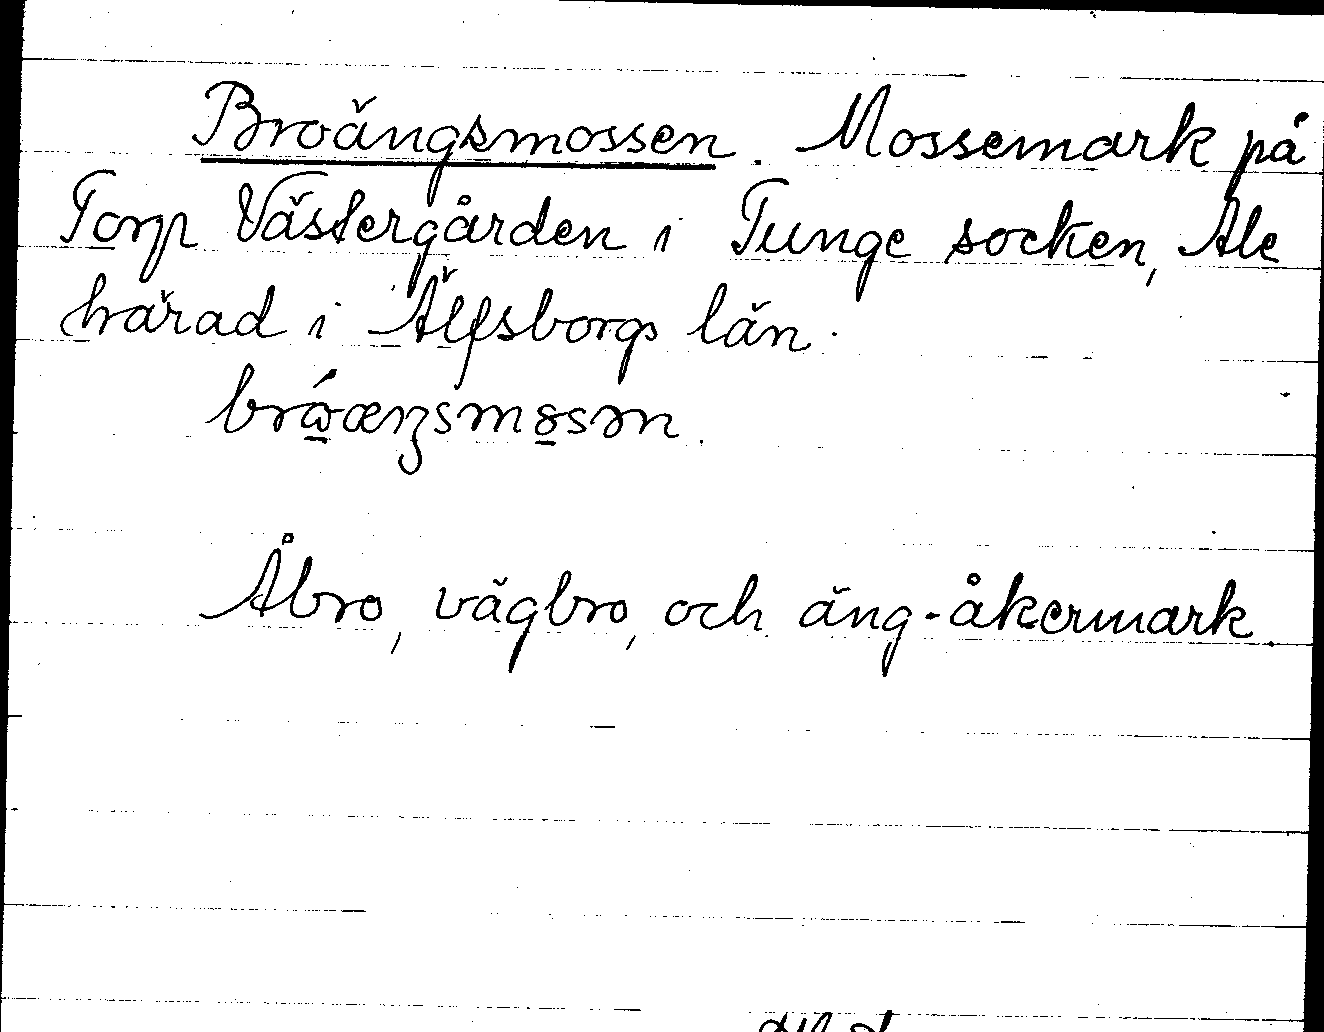 Broängsmossen. Mossemark på
Torp Västergården i Tunge socken, Ale
härad i Älfsborgs län.
Åbro, vägbro, och äng-åkermark.